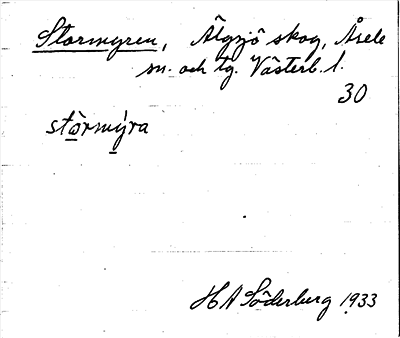 Stormyren, Älgsjö skog, Åsele
sn. och tg. Västerb. l.
30
stòrmýra
H A Söderberg 1933